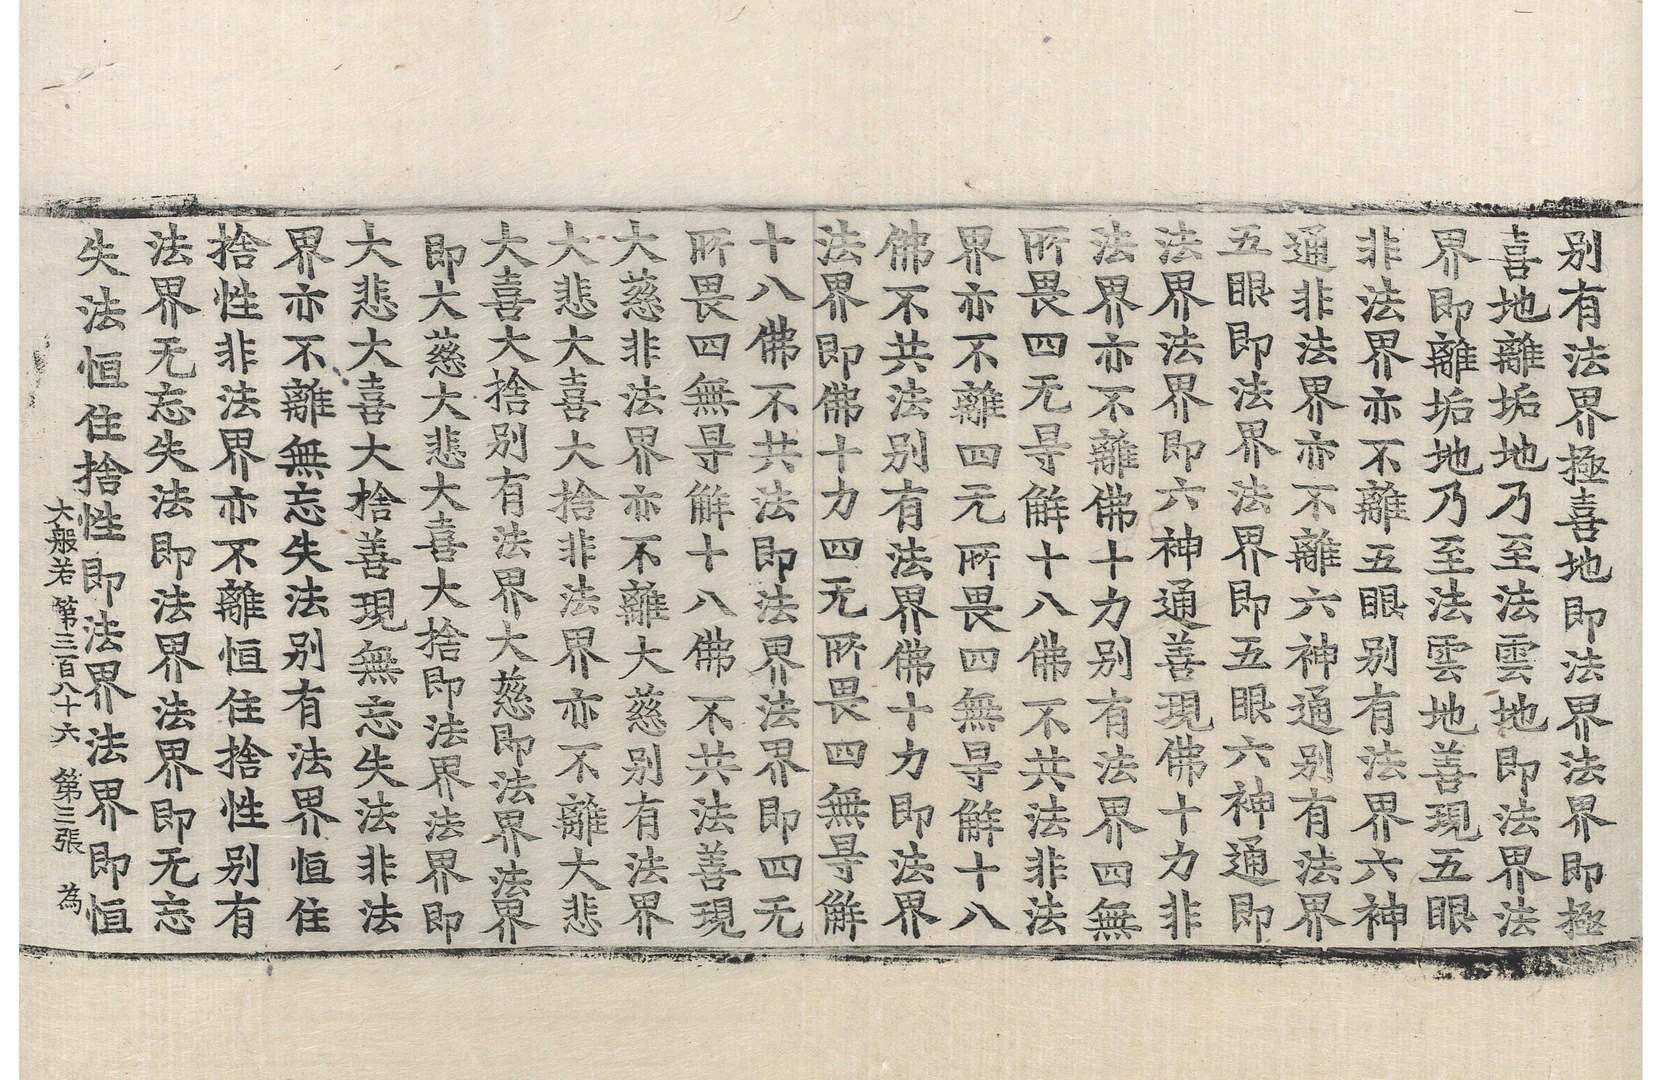 别有法界極喜地即法界法界即極
喜地離垢地乃至法雲地即法界法
界即離垢地乃至法雲地善現五眼
非法界亦不離五眼别有法界六神
通非法界亦不離六神通别有法界
五眼即法界法界即五眼六神通即
法界法界即六神通善現佛十力非
法界亦不離佛十力别有法界四無
所畏四无㝵解十八佛不共法非法
界亦不離四无所畏四無㝵解十八
佛不共法别有法界佛十力即法界
法界即佛十力四无所畏四無㝵解
十八佛不共法即法界法界即四无
所畏四無㝵解十八佛不共法善現
大慈非法界亦不離大慈别有法界
大悲大喜大捨非法界亦不離大悲
大喜大捨别有法界大慈即法界法界
即大慈大悲大喜大捨即法界法界即
大悲大喜大捨善現無忘失法非法
界亦不離無忘失法别有法界恒住
捨性非法界亦不離恒住捨性别有
法界无忘失法即法界法界即无忘
失法恒住捨性即法界法界即恒
大般若第三百八十六 第三張 為